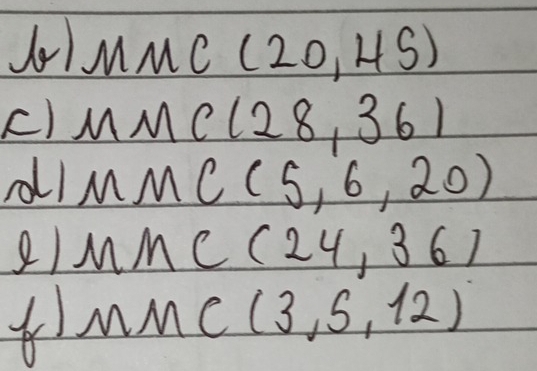 b) MMC (20, 45)
c) MMC (28, 36)
d) MMC (5, 6, 20)
e) MMC (24, 36)
f) MMC (3, 5, 12)